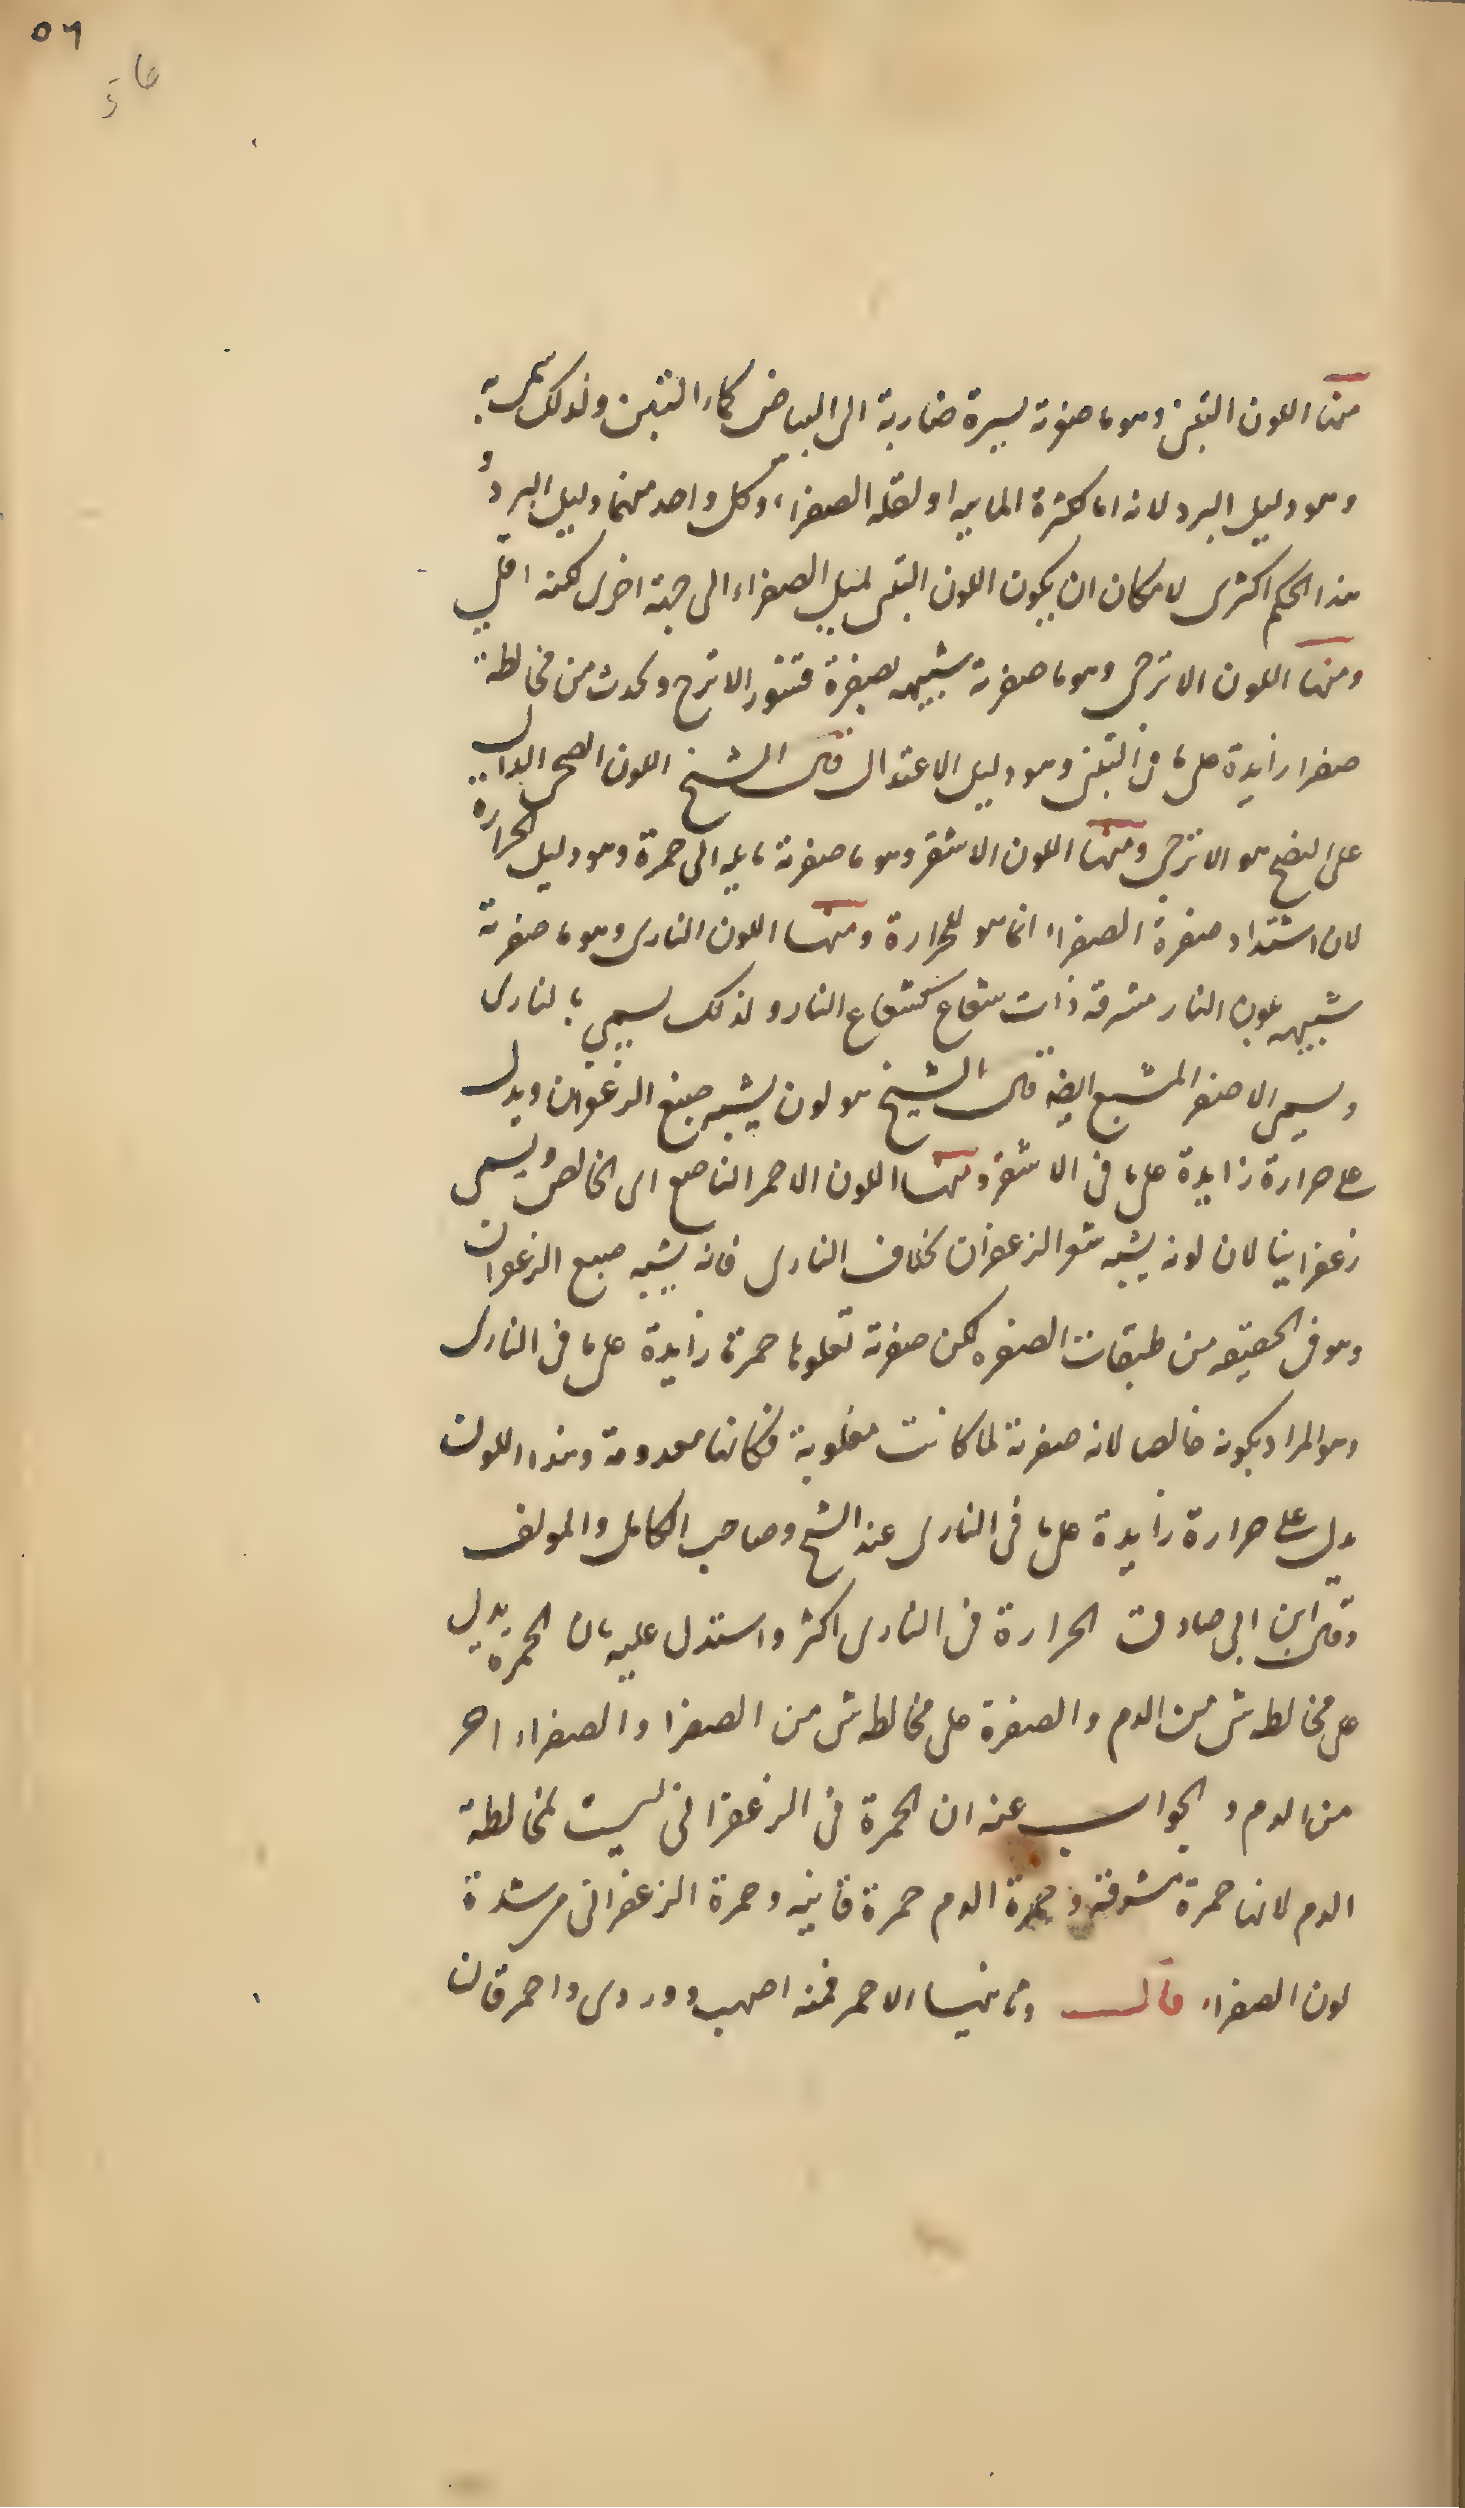 ٥٦
منها اللون التبنى وهو ما صفرته يسيرة ضاربة الى البياض كماء التبن ولذلك سمى به
وهو دليل البرد لانه اما لكثرة المائيه او لقلة الصفراء وكل واحد منهما دليل البرد و
هذا الحكم اكثرى لامكان ان يكون اللون التبنى لميل الصفراء الى جهة اخرى لكنه اقلى
ومنها اللون الاترجى وهو ما صفرته شبيهه بصفرة قشور الاترج ويحدث من مخالطة
صفرا زايدة على ما فى التبنى وهو دليل الاعتدال قال الشيخ اللون الصحى الدال
على النضج هو الاترجى ومنها اللون الاشقر وهو ما صفرته مايله الى حمرة وهو دليل الحرارة
لان اشتداد صفرة الصفراء انما هو للحرارة ومنها اللون النارى وهو ما صفرته
شبيهه بلون النار مشرقه ذات شعاع كشعاع النار ولذلك سمى بالنارى
ويسمى الاصفر المشبع ايضا قال الشيخ هو لون يشبه صبغ الزعفران ويدل
على حرارة زايدة على ما فى الاشقر ومنها اللون الاحمر الناصع اى الخالص ويسمى
زعفرانيا لان لونه يشبه شعر الزعفران بخلاف النارى فانه يشبه صبغ الزعفران
وهو فى الحقيقه من طبقات الصفره لكن صفرته تعلوها حمرة زايدة على ما فى النارى
وهو المراد بكونه خالصا لانه صفرته لما كانت مغلوبة فكانها معدومة وهذا اللون
يدل على حرارة زايدة على ما فى النارى عند الشيخ وصاحب الكامل والمولف
وقال ابن ابى صادق الحرارة فى النارى اكثر واستدل عليه بان الحمرة يدل
على مخالطة شى من الدم والصفرة على مخالطة شى من الصفرا والصفراء احر
من الدم والجواب عنه ان الحمرة فى الزعفرانى ليست لمخالطة
الدم لانها حمرة مشرقة وحمرة الدم حمرة قانيه وحمرة الزعفرانى من شدة
لون الصفراء قال وثانيها الاحمر فمنه اصهب ووردى واحمر قان